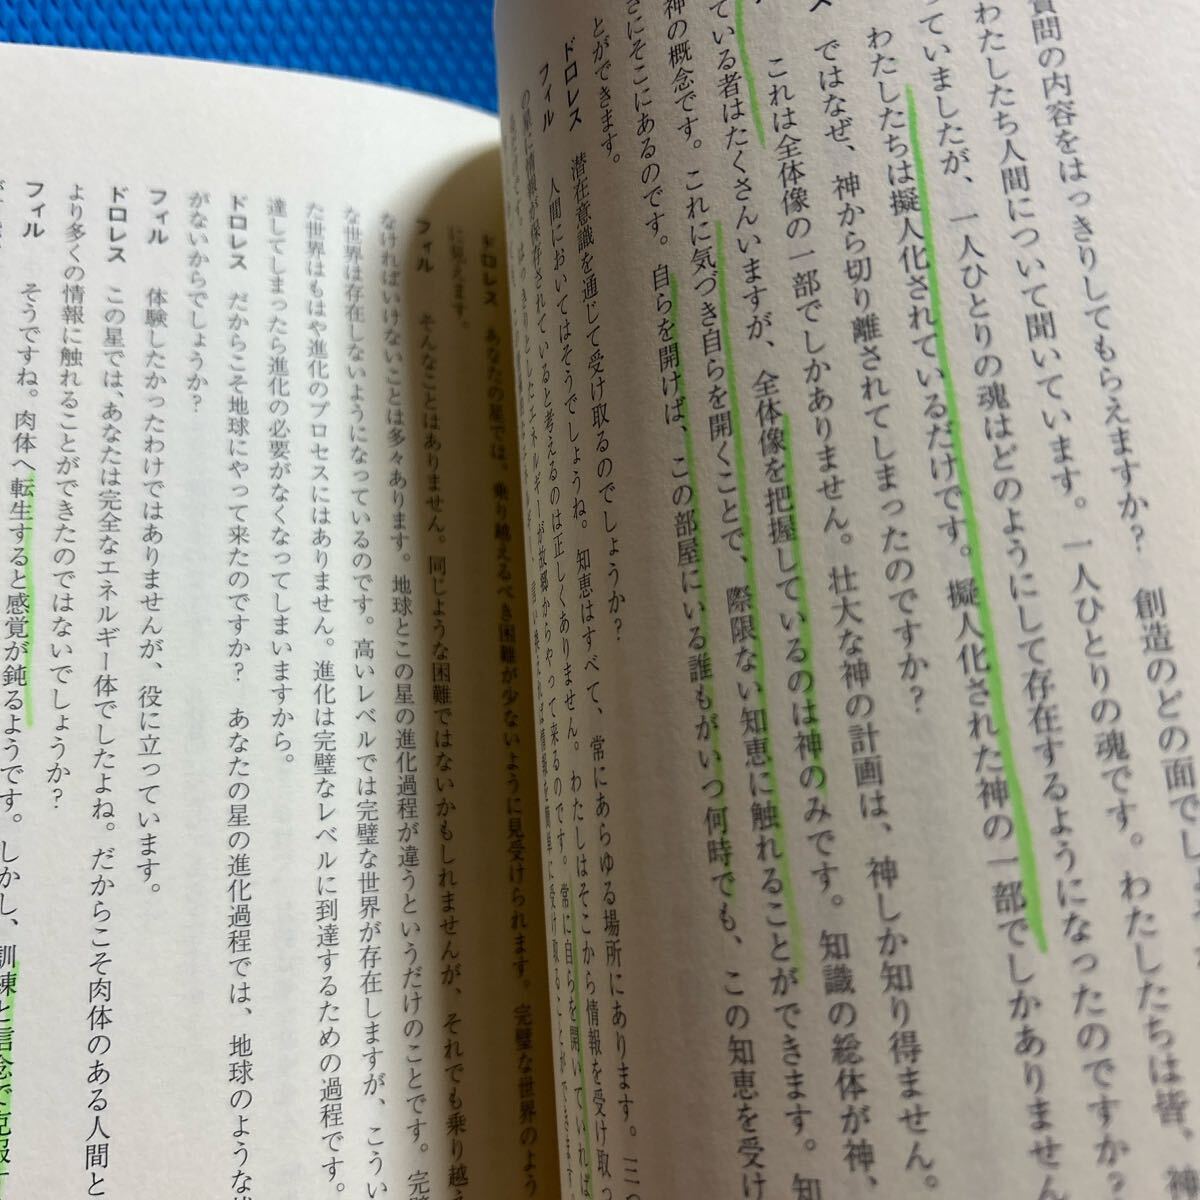 質問の内容をはっきりしてもらえますか? 創造のどの面でし
わたしたち人間について聞いています。一人ひとりの魂です。わたしたちは皆、神
っていましたが、一人ひとりの魂はどのようにして存在するようになったのですか?
わたしたちは擬人化されているだけです。擬人化された神の一部でしかありません
ではなぜ、神から切り離されてしまったのですか?
これは全体像の一部でしかありません。壮大な神の計画は、神しか知り得ません。
ている者はたくさんいますが、全体像を把握しているのは神のみです。知識の総体が神、
神の概念です。これに気づき自らを開くことで、際限ない知恵に触れることができます。知
さにそこにあるのです。自らを開けば、この部屋にいる誰もがいつ何時でも、この知恵を受け
とができます。
ドロレス 潜在意識を通じて受け取るのでしょうか?
フィル 人間においてはそうでしょうね。知恵はすべて、常にあらゆる場所にあります。三つ
の星に情報が保存されていると考えるのは正しくありません。わたしはそこから情報を受け取っ
はっきりとしたエネルギーが故郷からやって来るのです。常に自らを開いていれば
言い換えれば情報を簡単に受け取ることができます。
ドロレス あなたの星では、乗り越えるべき困難が少ないように見受けられます。完璧な世界のよう
に見えます。
フィル そんなことはありません。同じような困難ではないかもしれませんが、それでも乗り越え
なければいけないことは多々あります。地球とこの星の進化過程が違うというだけのことです。完璧
な世界は存在しないようになっているのです。高いレベルでは完璧な世界が存在しますが、こうい
た世界はもはや進化のプロセスにはありません。進化は完璧なレベルに到達するための過程です。
達してしまったら進化の必要がなくなってしまいますから。
ドロレス だからこそ地球にやって来たのですか? あなたの星の進化過程では、地球のような
がないからでしょうか?
フィル 体験したかったわけではありませんが、役に立っています。
ドロレス この星では、あなたは完全なエネルギー体でしたよね。だからこそ肉体のある人間と
より多くの情報に触れることができたのではないでしょうか?
フィル そうですね。肉体へ転生すると感覚が鈍るようです。しかし、訓練と信念で克服す